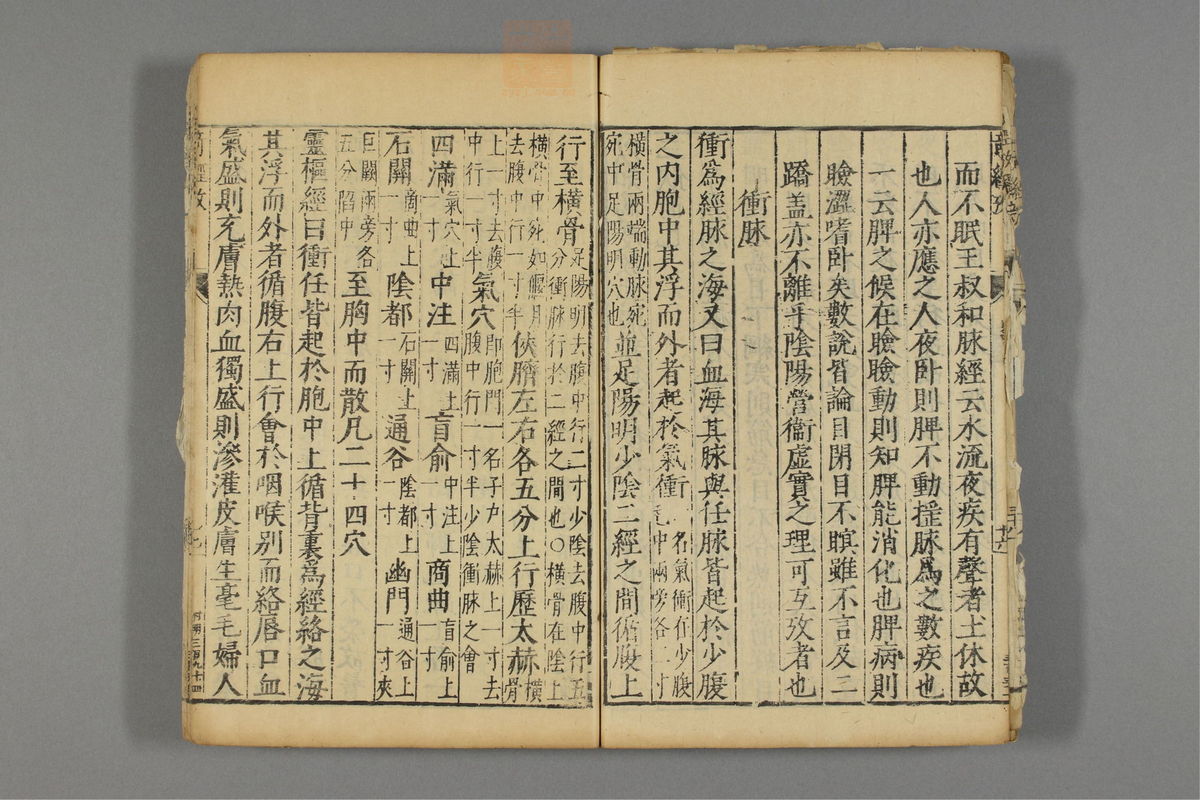 而不眠王叔和脉經云水流夜疾有聲者土休故
也人亦應之人夜卧則脾不動搖脉爲之數疾也
一云脾之候在瞼瞼動則知脾能消化也脾病則
瞼澀嗜卧矣數說皆論目閉目不瞑雖不言及二
蹻盖亦不離乎陰陽營衞虛實之理可互攷者也
衝脉
衝爲經脉之海又曰血海其脉與任脉皆起於少腹
之内胞中其浮而外者起於氣衝一名氣街在少腹毛中兩傍各二寸
橫骨兩端動脉宛宛中足陽明穴也並足陽明少陰二經之間循腹上
行至橫骨足陽明去腹中行二寸少陰去腹中行五分衝脉行於二經之間也○橫骨在陰上
橫骨中宛如偃月去腹中行一寸半俠臍左右各五分上行歷太赫橫骨
上一寸去腹中行一寸半氣穴即胞門一名子户太赫上一寸去腹中行一寸半少陰衝脉之會
四滿氣穴上一寸中注四滿上一寸肓俞中注上一寸商曲肓俞上一寸
石關商曲上一寸陰都石關上一寸通谷陰都上一寸幽門通谷上一寸夾
巨闕兩旁各五分陷中至胸中而散凡二十四穴
靈樞經曰衝任皆起於胞中上循背裏爲經絡之海
其浮而外者循腹右上行會於咽喉别而絡唇口血
氣盛則充膚熱肉血獨盛則滲灌皮膚生毫毛婦人